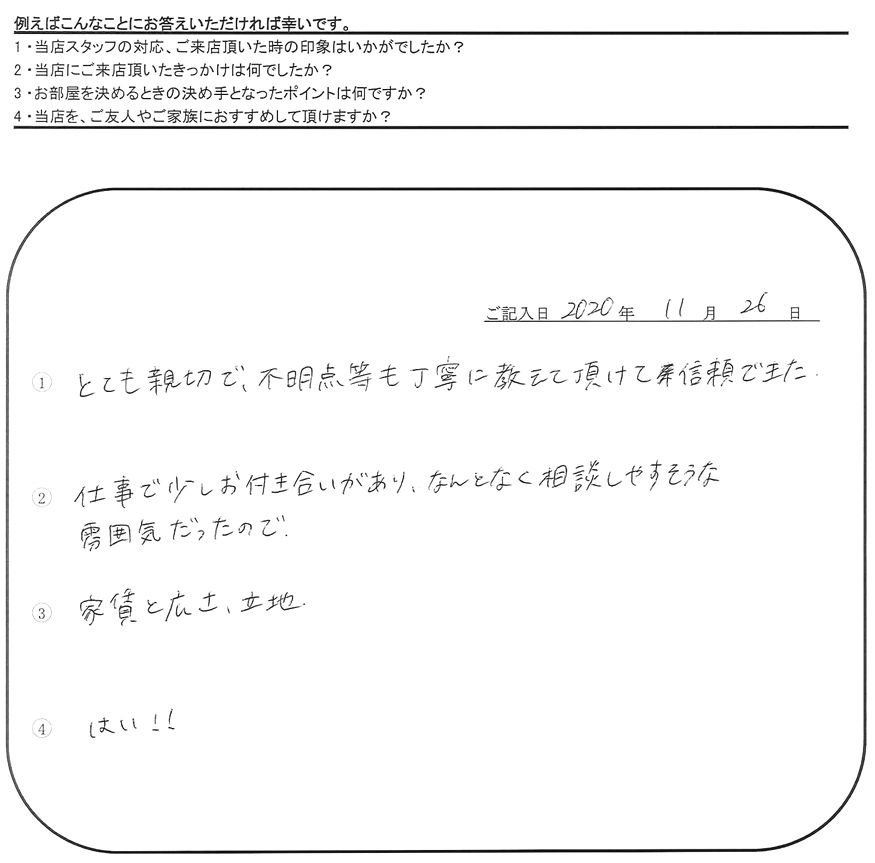 例えばこんなことにお答えいただければ幸いです。
1・当店スタッフの対応、ご来店頂いた時の印象はいかがでしたか?
2・当店にご来店頂いたきっかけは何でしたか?
3・お部屋を決めるときの決め手となったポイントは何ですか?
4・当店を、ご友人やご家族におすすめして頂けますか?
ご記入日 2020 年 11 月 26 日
① とても親切で、不明点等も丁寧に教えて頂けて信頼できた.
② 仕事で少しお付き合いがあり、なんとなく相談しやすそうな
雰囲気だったので.
③ 家賃と広さ、立地.
④ はい!!